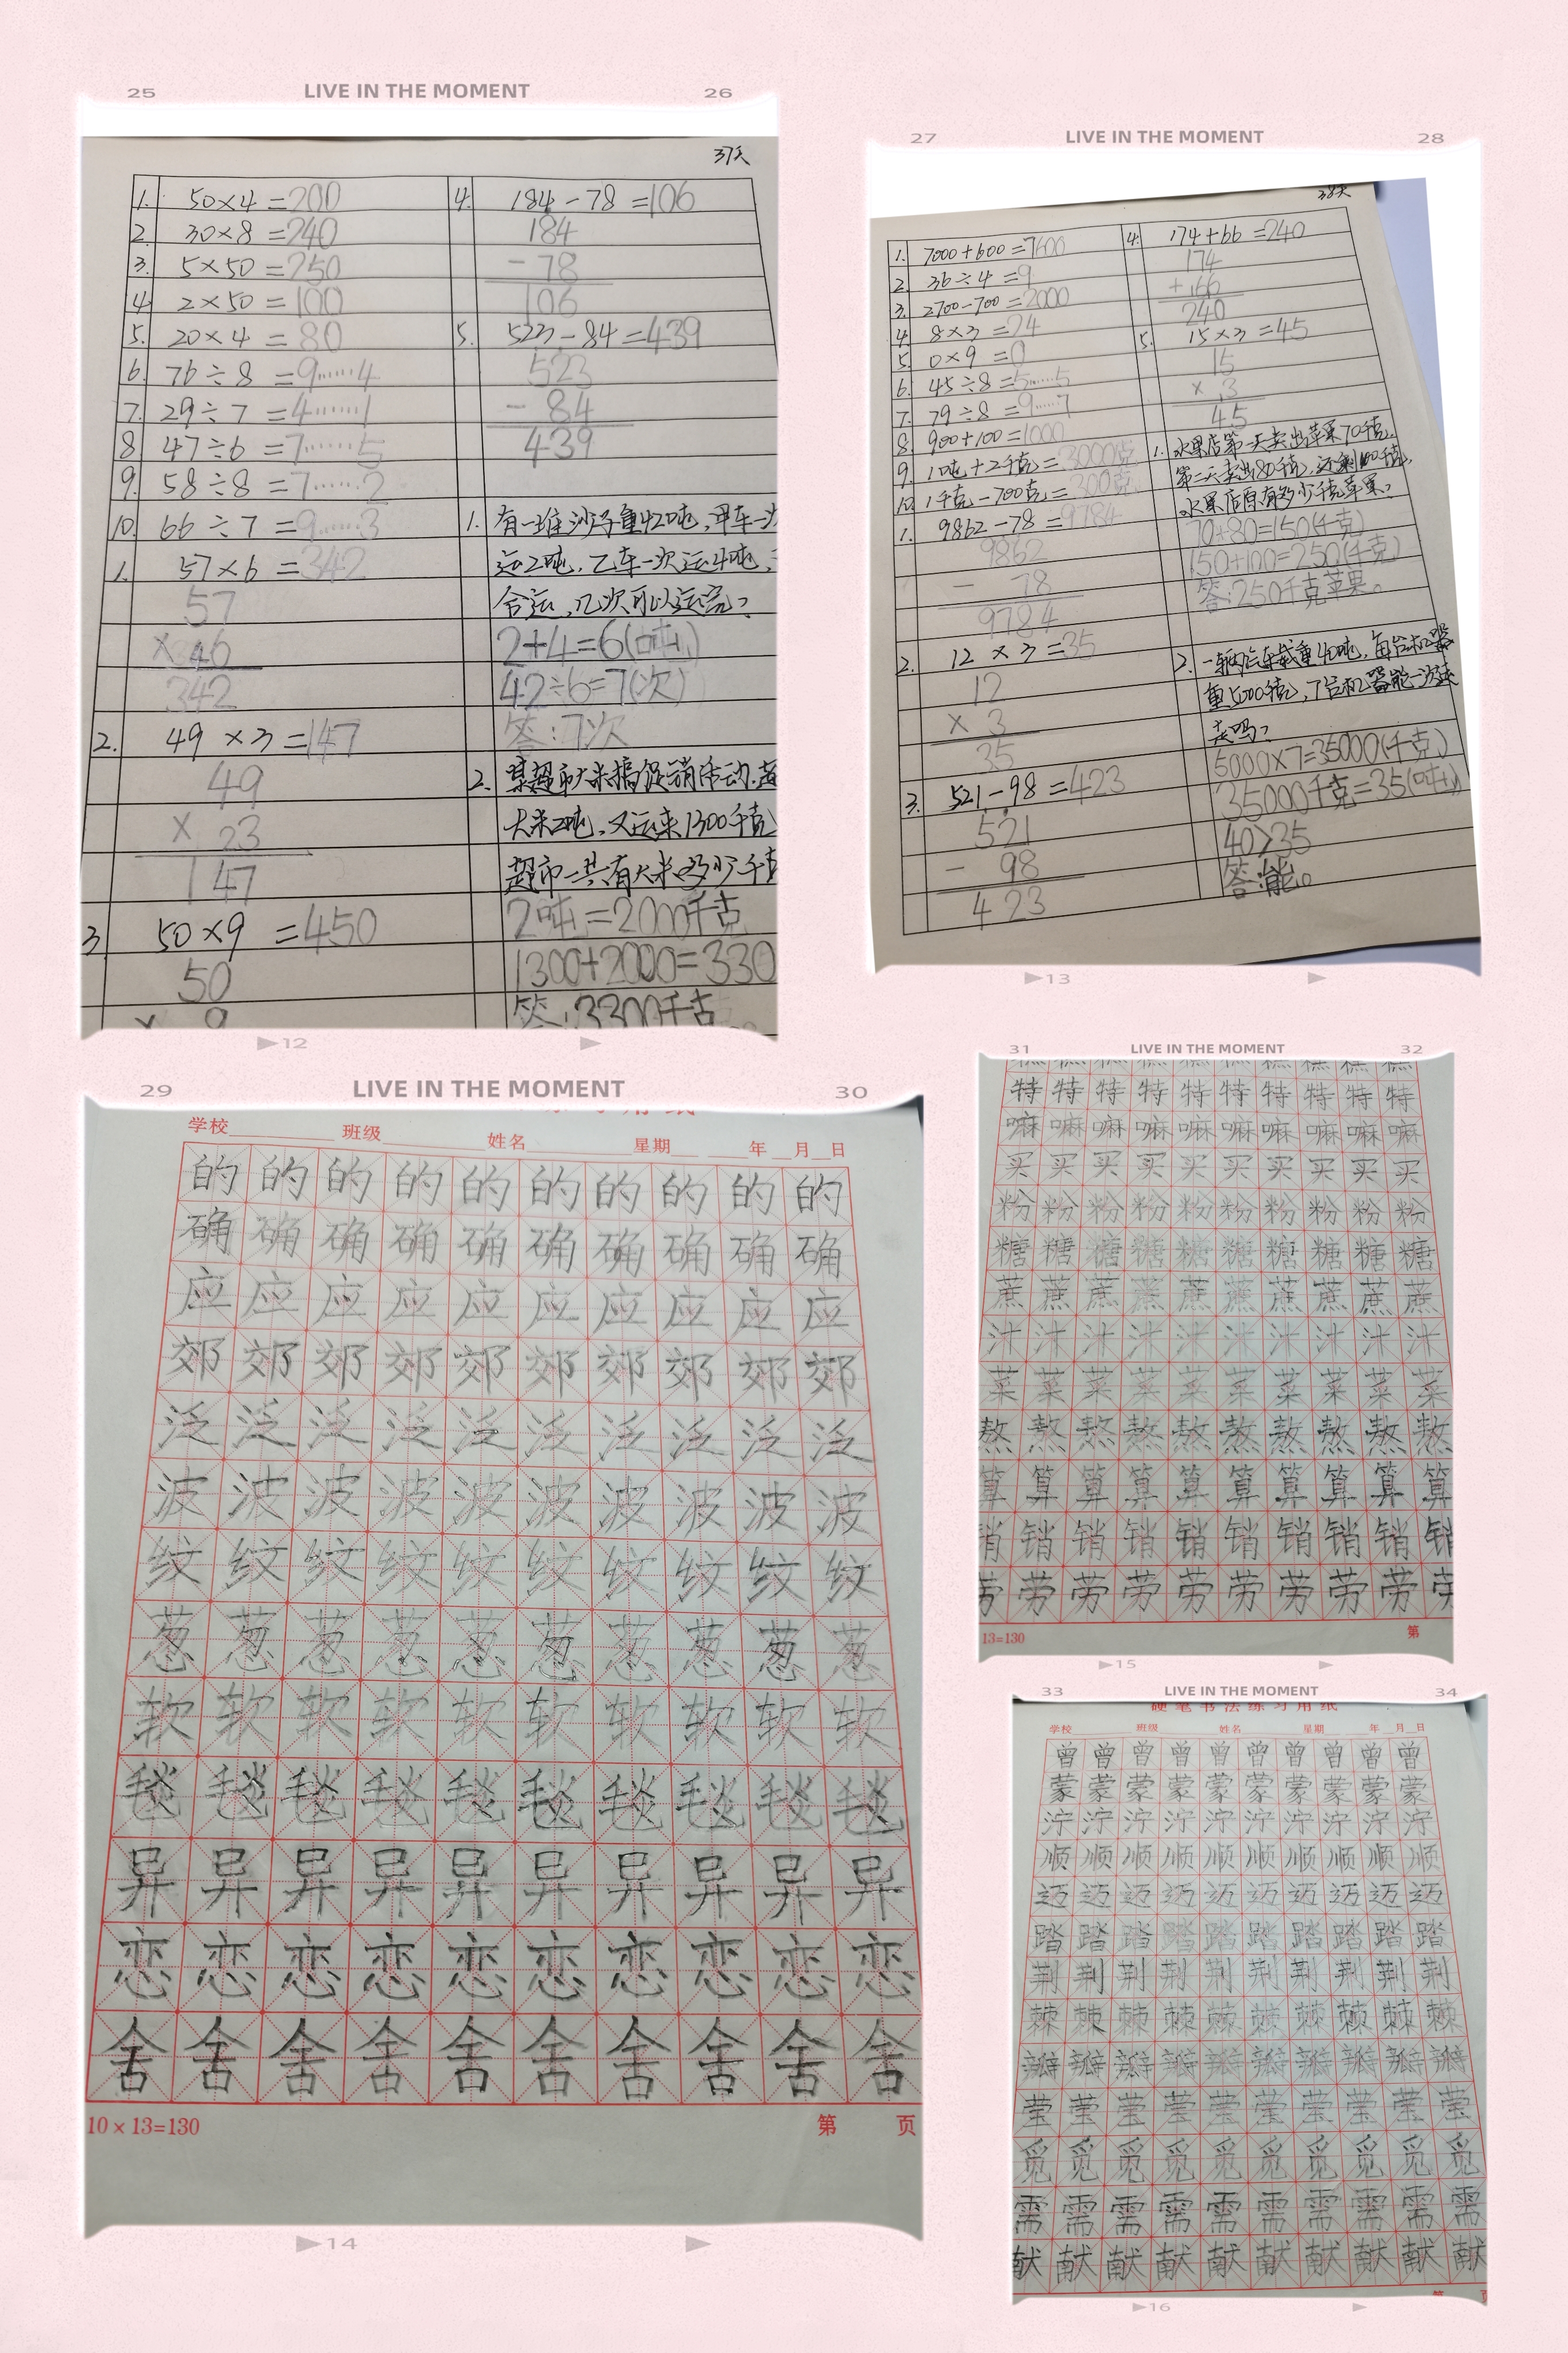 25 LIVE IN THE MOMENT 26
37天
1. 50×4=200
2. 30×8=240
3. 5×50=250
4. 2×50=100
5. 20×4=80
6. 76÷8=9……4
7. 29÷7=4……1
8 47÷6=7……5
9. 58÷8=7……2
10. 66÷7=9……3
1. 57×6=342
57
342
2. 49×3=147
49
× 23
147
3 50×9=450
50
× 9
4. 184-78=106
184
- 78
106
5. 523-84=439
523
- 84
439
1. 有一堆沙子重420吨,甲车一次
运2吨,乙车一次运4吨,
合运,几次可以运完?
2+4=6(吨)
42÷6=7(次)
答:7次
2. 某超市大米搞促销活动.超
大米2吨,又运来1300千克
超市一共有大米多少千克
2吨=2000千克
1300+2000=330
答:3300千克
▶12 ▶
27 LIVE IN THE MOMENT 28
38天
1. 7000+600=7600
2. 36÷4=9
3. 2700-700=2000
4. 8×3=24
5. 0×9=0
6. 45÷8=5……5
7. 79÷8=9……7
8. 900+100=1000
9. 1吨+2千克=3000克
10. 1千克-700克=300克
1. 9862-78=9784
9862
- 78
9784
2. 12×3=35
12
× 3
35
3. 521-98=423
521
- 98
423
4. 174+66=240
174
+ 66
240
5. 15×3=45
15
× 3
45
1. 水果店第一天卖出苹果70千克.
第二天卖出80千克,还剩100千克,
水果店原有多少千克苹果?
70+80=150(千克)
150+100=250(千克)
答:250千克苹果。
2. 一辆汽车载重40吨,每台机器
重5000千克,7台机器能一次运
走吗?
5000×7=35000(千克)
35000千克=35(吨)
40>35
答:能。
▶13 ▶
29 LIVE IN THE MOMENT 30
学校 班级 姓名 星期 年 月 日
的的的的的的的的的的
确确确确确确确确确确
应应应应应应应应应应
郊郊郊郊郊郊郊郊郊郊
泛泛泛泛泛泛泛泛泛泛
波波波波波波波波波波
纹纹纹纹纹纹纹纹纹纹
葱葱葱葱葱葱葱葱葱葱
软软软软软软软软软软
毯毯毯毯毯毯毯毯毯毯
异异异异异异异异异异
恋恋恋恋恋恋恋恋恋恋
舍舍舍舍舍舍舍舍舍舍
10×13=130 第 页
▶14 ▶
31 LIVE IN THE MOMENT 32
特特特特特特特特特特
嘛嘛嘛嘛嘛嘛嘛嘛嘛嘛
买买买买买买买买买买
粉粉粉粉粉粉粉粉粉粉
糖糖糖糖糖糖糖糖糖糖
蔗蔗蔗蔗蔗蔗蔗蔗蔗蔗
汁汁汁汁汁汁汁汁汁汁
菜菜菜菜菜菜菜菜菜菜
熬熬熬熬熬熬熬熬熬熬
算算算算算算算算算算
销销销销销销销销销销
劳劳劳劳劳劳劳劳劳劳
13=130 第
▶15 ▶
33 LIVE IN THE MOMENT 34
硬笔书法练习用纸
学校 班级 姓名 星期 年 月 日
曾曾曾曾曾曾曾曾曾曾
蒙蒙蒙蒙蒙蒙蒙蒙蒙蒙
泞泞泞泞泞泞泞泞泞泞
顺顺顺顺顺顺顺顺顺顺
迈迈迈迈迈迈迈迈迈迈
踏踏踏踏踏踏踏踏踏踏
荆荆荆荆荆荆荆荆荆荆
棘棘棘棘棘棘棘棘棘棘
瓣瓣瓣瓣瓣瓣瓣瓣瓣瓣
莹莹莹莹莹莹莹莹莹莹
觅觅觅觅觅觅觅觅觅觅
需需需需需需需需需需
献献献献献献献献献献
▶16 ▶